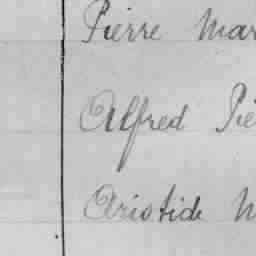 Pierre Mar
Alfred Pie
Aristide